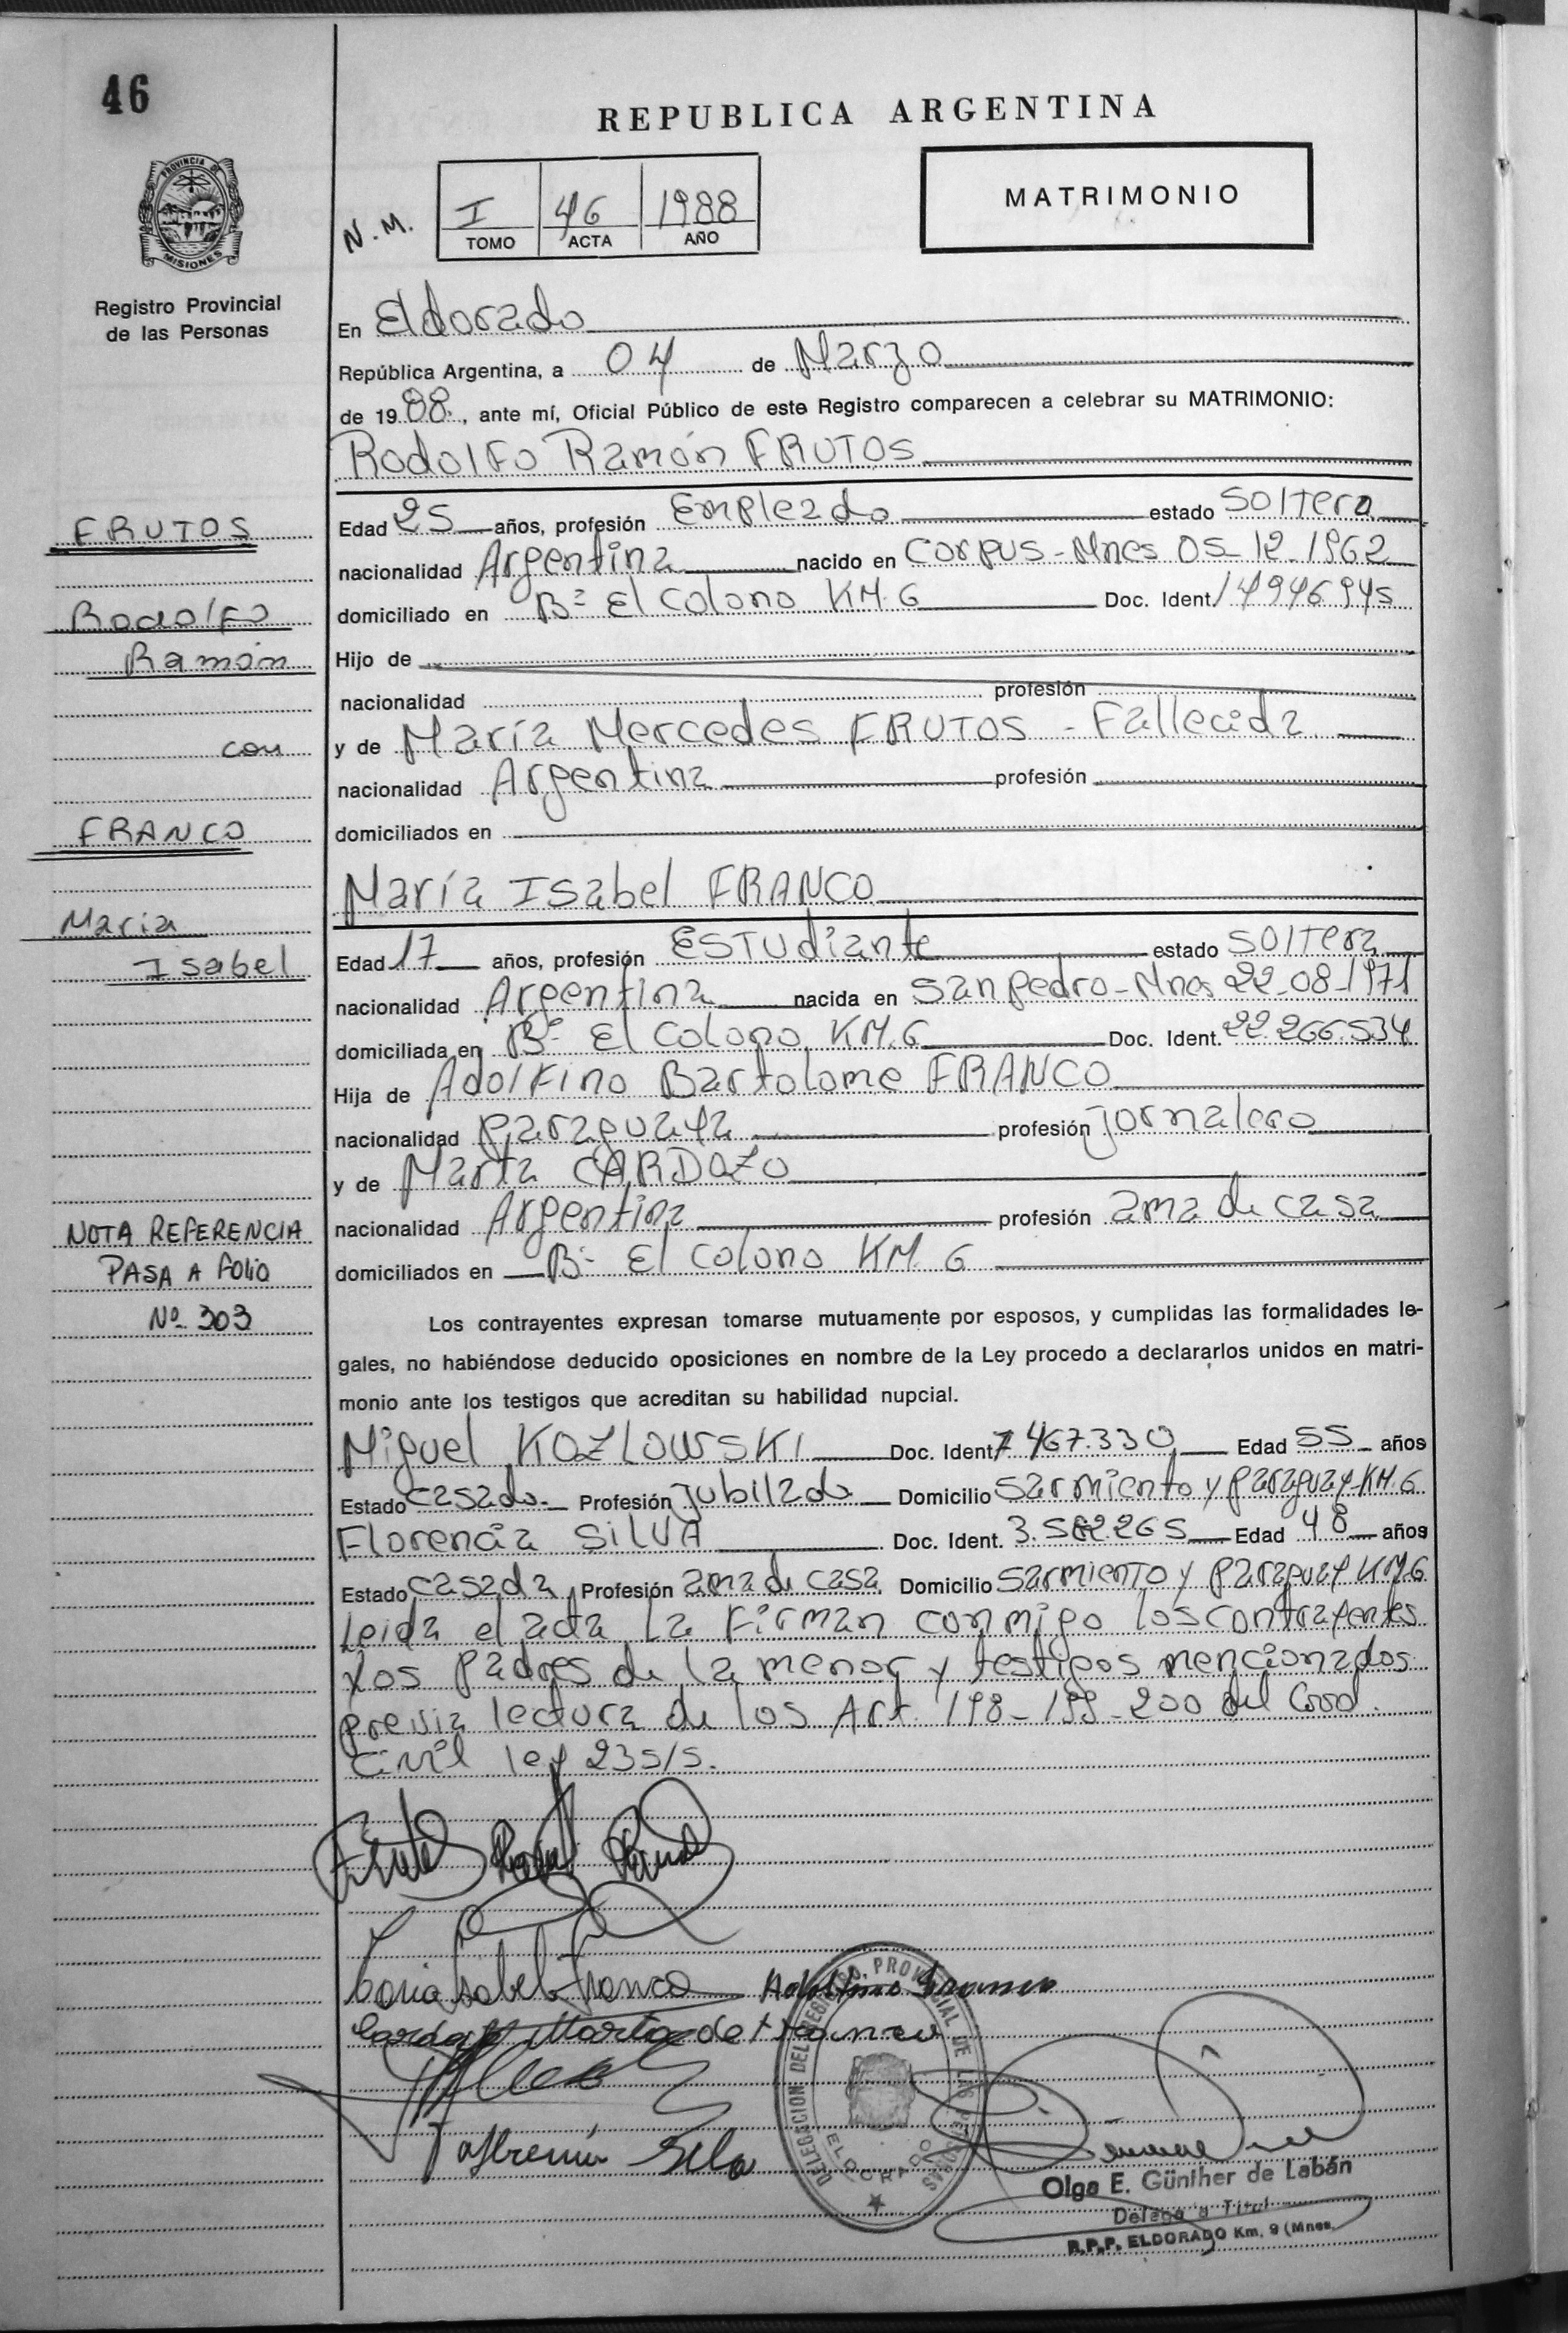 46
REPUBLICA ARGENTINA
PROVINCIA DE
MISIONES
Registro Provincial
de las Personas
N.M.
I 46 1988
TOMO ACTA AÑO
MATRIMONIO
En Eldorado
República Argentina, a 04 de Marzo
de 1988, ante mí, Oficial Público de este Registro comparecen a celebrar su MATRIMONIO:
Rodolfo Ramón FRUTOS
FRUTOS
Rodolfo
Ramón
con
FRANCO
Maria
Isabel
NOTA REFERENCIA
PASA A FOLIO
Nº 303
Edad 25 años, profesión Empleado estado soltero
nacionalidad Argentina nacido en Corpus-Mnes 05-12-1962
domiciliado en Bº El Colono KM.6 Doc. Ident 14946945
Hijo de
nacionalidad profesión
y de María Mercedes FRUTOS - Fallecida
nacionalidad Argentina profesión
domiciliados en
María Isabel FRANCO
Edad 17 años, profesión Estudiante estado soltera
nacionalidad Argentina nacida en San Pedro-Mnes 22-08-1971
domiciliada en Bº El Colono KM.6 Doc. Ident. 22.266.534
Hija de Adolfino Bartolome FRANCO
nacionalidad Paraguaya profesión jornalero
y de Marta CARDOZO
nacionalidad Argentina profesión ama de casa
domiciliados en Bº El Colono KM. 6
Los contrayentes expresan tomarse mutuamente por esposos, y cumplidas las formalidades le-
gales, no habiéndose deducido oposiciones en nombre de la Ley procedo a declararlos unidos en matri-
monio ante los testigos que acreditan su habilidad nupcial.
Miguel KOZLOWSKI Doc. Ident 7.467.330 Edad 55 años
Estado casado Profesión jubilado Domicilio Sarmiento y Paraguay KM.6
Florencia SILVA Doc. Ident. Edad 48 años
Estado casada Profesión ama de casa Domicilio Sarmiento y Paraguay KM6
Leida el acta la firman conmigo los contrayentes
Los padres de la menor y testigos mencionados
previa lectura de los Art. 198-199-200 del Cod.
Civil ley 23515.
Maria Isabel Franco Adolfino Franco
Marta de Franco
DELEGACION DEL REGISTRO PROVINCIAL DE LAS PERSONAS
ELDORADO
Olga E. Günther de Labán
Delegada Titul
R.P.P. ELDORADO Km. 9 (Mnes.